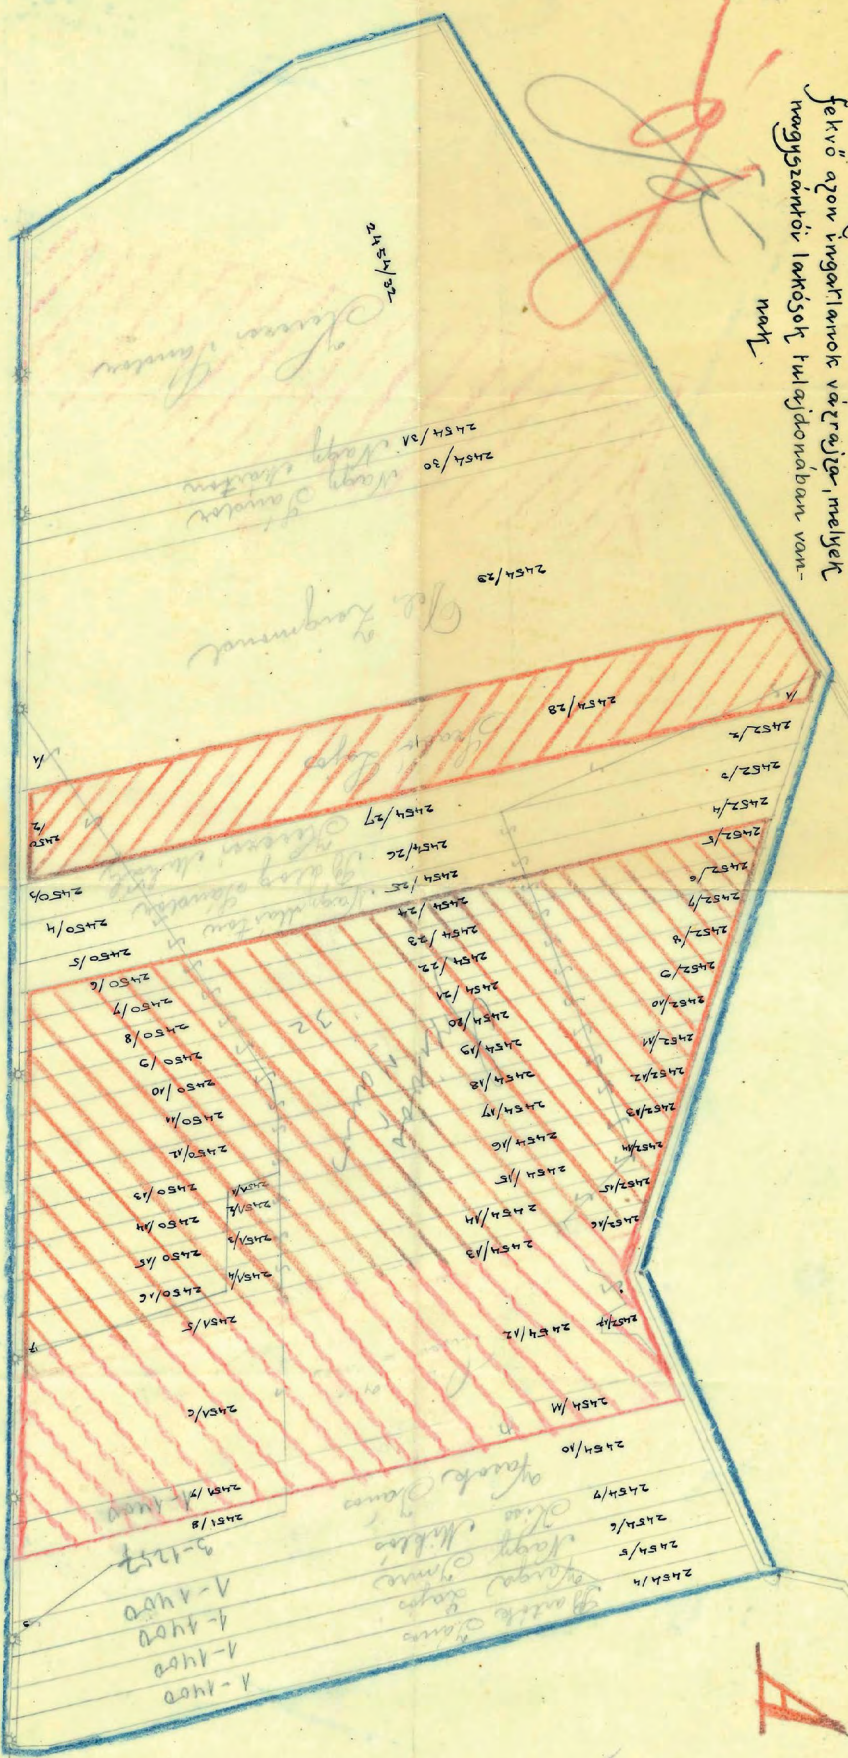 fekvő azon ingatlanok vázrajza, melyek
nagyszántói lakósok tulajdonában van-
nak.
2454/32
2454/31
Nagy Márton
2454/30
Nagy Sándor
2454/29
Zsigmond
2454/28
Lajos
2454/27
2454/26
2454/25
Nagy Márton
2454/24
2454/23
2454/22
2454/21
2454/20
2454/19
2454/18
2454/17
2454/16
2454/15
2454/14
2454/13
2454/12
2454/11
2454/10
János
2454/7
Kiss Miklós
2454/6
Nagy Imre
2454/5
Varga Lajos
2454/4
Bartók János
/1
2452/2
2452/3
2452/4
2452/5
2452/6
2452/7
2452/8
2452/9
2452/10
2452/11
2452/12
2452/13
2452/14
2452/15
2452/16
2452/17
/1
2450/2
2450/3
2450/4
2450/5
2450/6
2450/7
2450/8
2450/9
2450/10
2450/11
2450/12
2450/13
2450/14
2450/15
2450/16
2451/1
2451/2
2451/3
2451/4
2451/5
2451/6
2451/7
2451/8
32
1-1400
3-1257
1-1400
1-1400
1-1400
1-1400
A